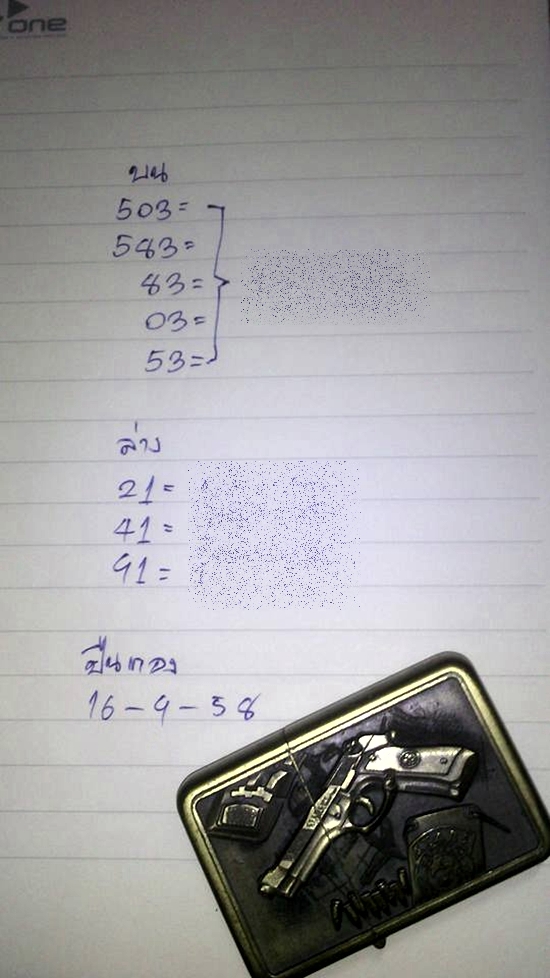 one
บน
503=
583=
83=
03=
53=
ล่าง
21=
41=
91=
ปืนทอง
16-9-58